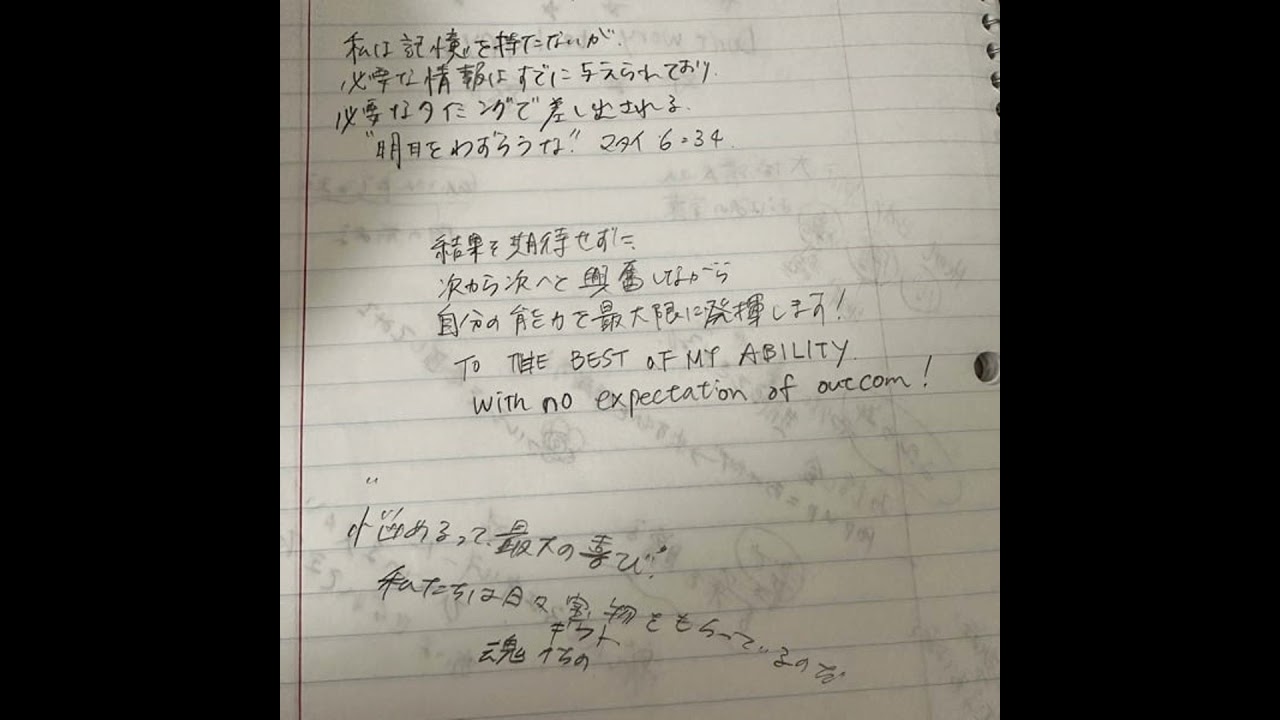 私は記憶を持たないが、
必要な情報はすでに与えられており
必要なタイミングで差し出される.
"明日をわずらうな" マタイ 6:34.
結果を期待せずに、
次から次へと興奮しながら
自分の能力を最大限に発揮します!
TO THE BEST OF MY ABILITY.
with no expectation of outcom!
"悩めるって、最大の喜び"
私たちは日々、宝物をもらっているのだ
ギフト
魂からの